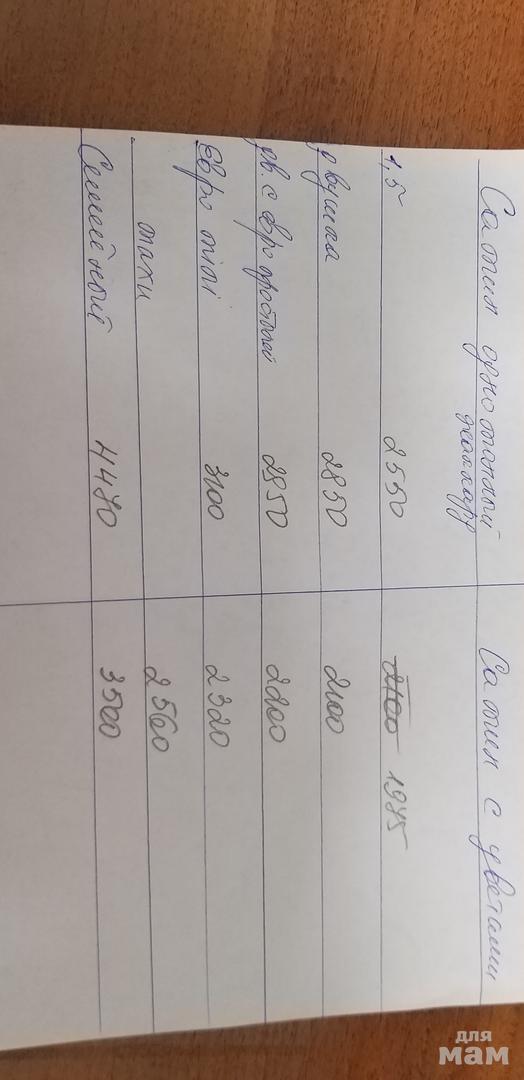 Сатин однотонный Сатин с цветами
жаккард
1,5 2550 2100 1985
двушка 2850 2100
дв. с евро простыней 2850 2200
Евро mini 3100 2320
maxi 2560
Семейный 4480 3500
для
мам